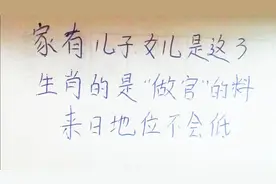 家有儿子女儿是这3
生肖的是“做官”的料
来日地位不会低